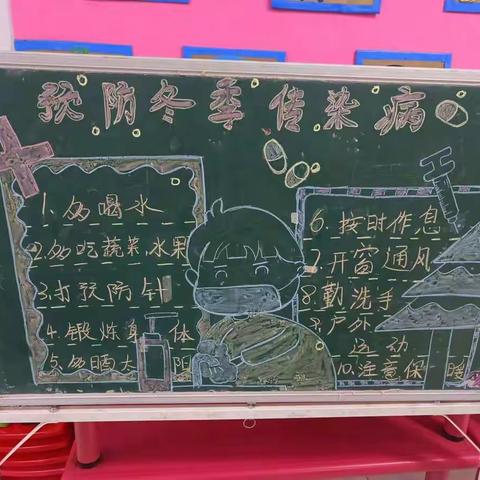 预防冬季传染病
1.多喝水
2.多吃蔬菜.水果
3.打预防针
4.锻炼身体
5.多晒太阳
6.按时作息
7.开窗通风
8.勤洗手
9.户外
运动
10.注意保暖